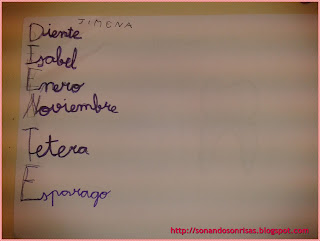 JIMENA
Diente
Isabel
Enero
Noviembre
Tetera
Esparago
http://sonandosonrisas.blogspot.com